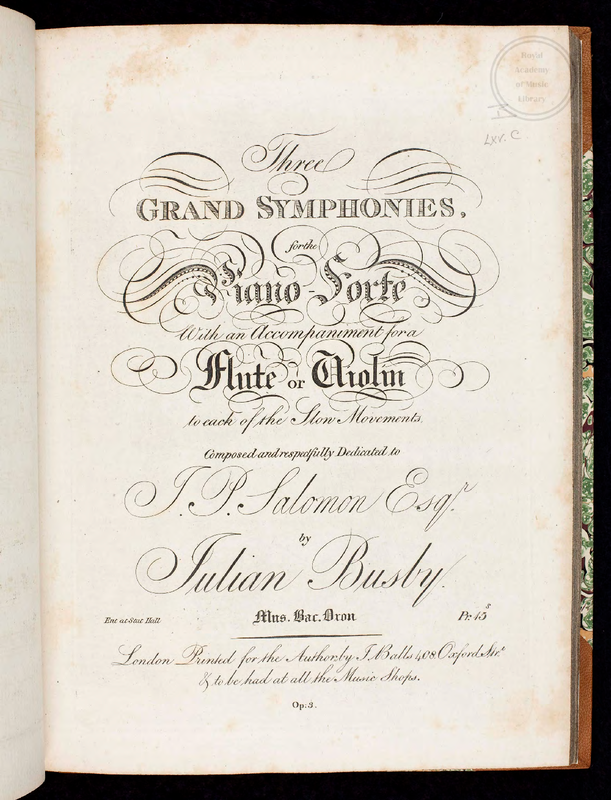 Royal
Academy
of Music
Library
LXV. C.
Three
GRAND SYMPHONIES,
for the
Piano-Forte
With an Accompaniment for a
Flute or Violin
to each of the Slow Movements,
Composed and respectfully Dedicated to
J. P. Salomon Esqr.
by
Julian Busby.
Mus. Bac. Oxon
Ent at Stat Hall
Pr. 15s
London Printed for the Author, by J. Balls 408 Oxford Str.t
& to be had at all the Music Shops.
Op: 3.